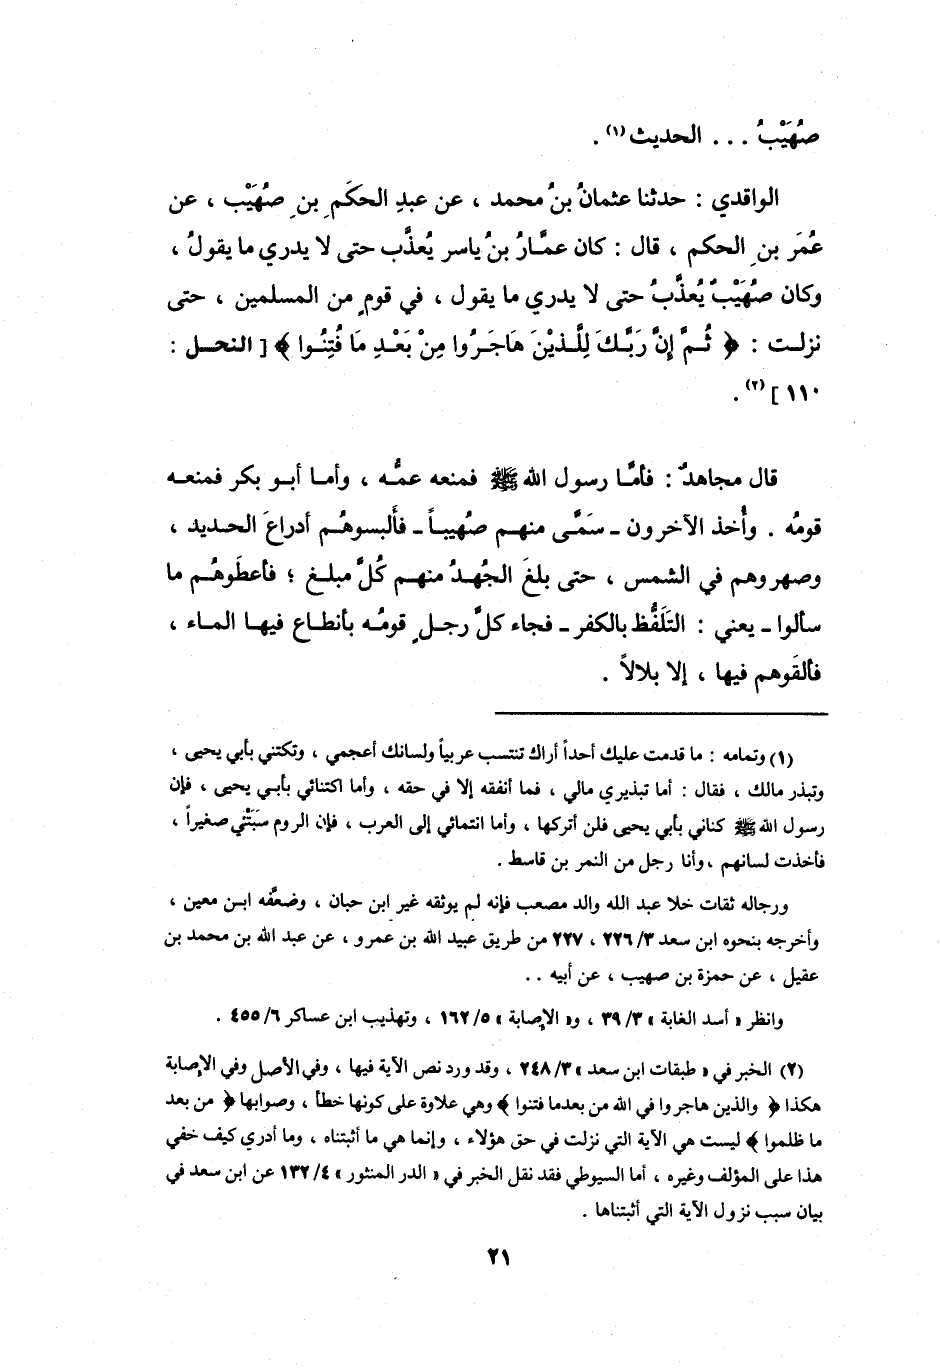 صُهَيْبُ ... الحديث (١) .
الواقدي : حدثنا عثمانُ بنُ محمد ، عن عبدِ الحكَم ِ بن ِ صُهَيْب ، عن
عُمَر بن ِ الحكم ، قال : كان عمَّارُ بنُ ياسر يُعذَّب حتى لا يدري ما يقولُ ،
وكان صُهَيْبٌ يُعذَّبُ حتى لا يدري ما يقول ، في قوم ٍ من المسلمين ، حتى
نزلت : ﴿ ثُمَّ إِنَّ رَبَّكَ لِلَّذِيْنَ هَاجَرُوا مِنْ بَعْدِ مَا فُتِنُوا ﴾ [ النحل :
١١٠ ] (٢) .
قال مجاهدٌ : فأمَّا رسول الله ﷺ فمنعه عمُّه ، وأما أبو بكر فمنعه
قومُه . وأُخذ الآخرون ـ سَمَّى منهم صُهيباً ـ فألبسوهُم أدراعَ الحديد ،
وصهروهم في الشمس ، حتى بلغَ الجُهدُ منهم كُلَّ مبلغ ؛ فأعطَوهُم ما
سألوا ـ يعني : التَلَفُّظ بالكفر ـ فجاء كلَّ رجل ٍ قومُه بأنطاع فيها الماء ،
فألقَوهم فيها ، إلا بلالاً .
(١) وتمامه : ما قدمت عليك أحداً أراك تنتسب عربياً ولسانك أعجمي ، وتكتني بأبي يحيى ،
وتبذر مالك ، فقال : أما تبذيري مالي ، فما أنفقه إلا في حقه ، وأما اكتنائي بأبي يحيى ، فإن
رسول الله ﷺ كناني بأبي يحيى فلن أتركها ، وأما انتمائي إلى العرب ، فإن الروم سَبَتْني صغيراً ،
فأخذت لسانهم ، وأنا رجل من النمر بن قاسط .
ورجاله ثقات خلا عبد الله والد مصعب فإنه لم يوثقه غير ابن حبان ، وضعَّفه ابن معين ،
وأخرجه بنحوه ابن سعد ٣/ ٢٢٦ ، ٢٢٧ من طريق عبيد الله بن عمرو ، عن عبد الله بن محمد بن
عقيل ، عن حمزة بن صهيب ، عن أبيه . .
وانظر « أسد الغابة » ٣/ ٣٩ ، و« الإصابة » ٥/ ١٦٢ ، وتهذيب ابن عساكر ٦/ ٤٥٥ .
(٢) الخبر في « طبقات ابن سعد » ٣/ ٢٤٨ ، وقد ورد نص الآية فيها ، وفي الأصل وفي الإصابة
هكذا ﴿ والذين هاجروا في الله من بعدما فتنوا ﴾ وهي علاوة على كونها خطأ ، وصوابها ﴿ من بعد
ما ظلموا ﴾ ليست هي الآية التي نزلت في حق هؤلاء ، وإنما هي ما أثبتناه ، وما أدري كيف خفي
هذا على المؤلف وغيره ، أما السيوطي فقد نقل الخبر في « الدر المنثور » ٤/ ١٣٢ عن ابن سعد في
بيان سبب نزول الآية التي أثبتناها .
٢١